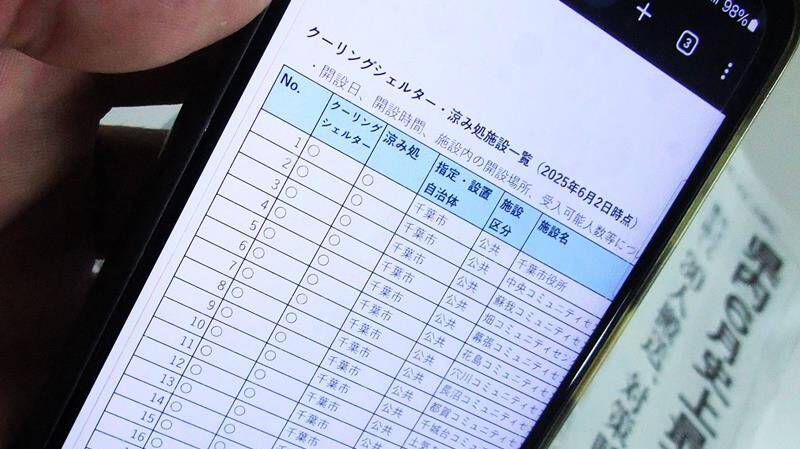 98%
3
クーリングシェルター・涼み処施設一覧（2025年6月2日時点）
・開設日、開設時間、施設内の開設場所、受入可能人数等につ
No. クーリングシェルター 涼み処 指定・設置自治体 施設区分 施設名
1 ○ ○ 千葉市 公共 千葉市役所
2 ○ ○ 千葉市 公共 中央コミュニティセ
3 ○ ○ 千葉市 公共 蘇我コミュニティセ
4 ○ ○ 千葉市 公共 畑コミュニティセン
5 ○ ○ 千葉市 公共 幕張コミュニティセ
6 ○ ○ 千葉市 公共 花島コミュニティセ
7 ○ ○ 千葉市 公共 穴川コミュニティセ
8 ○ ○ 千葉市 公共 長沼コミュニティセ
9 ○ ○ 千葉市 公共 都賀コミュニティセ
10 ○ ○ 千葉市 公共 千城台コミュニティ
11 ○ ○ 千葉市 公共
12 ○ ○
13 ○
14 ○
15 ○
16 ○